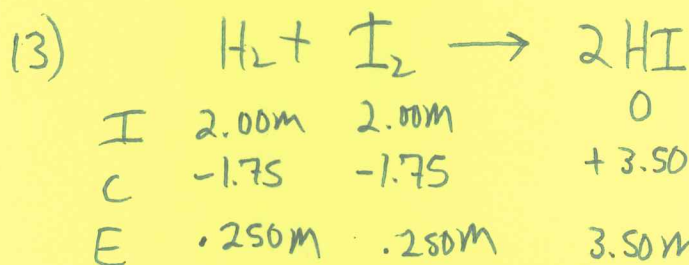 13) H₂ + I₂ → 2HI
I 2.00M 2.00M 0
C -1.75 -1.75 +3.50
E .250M .250M 3.50M